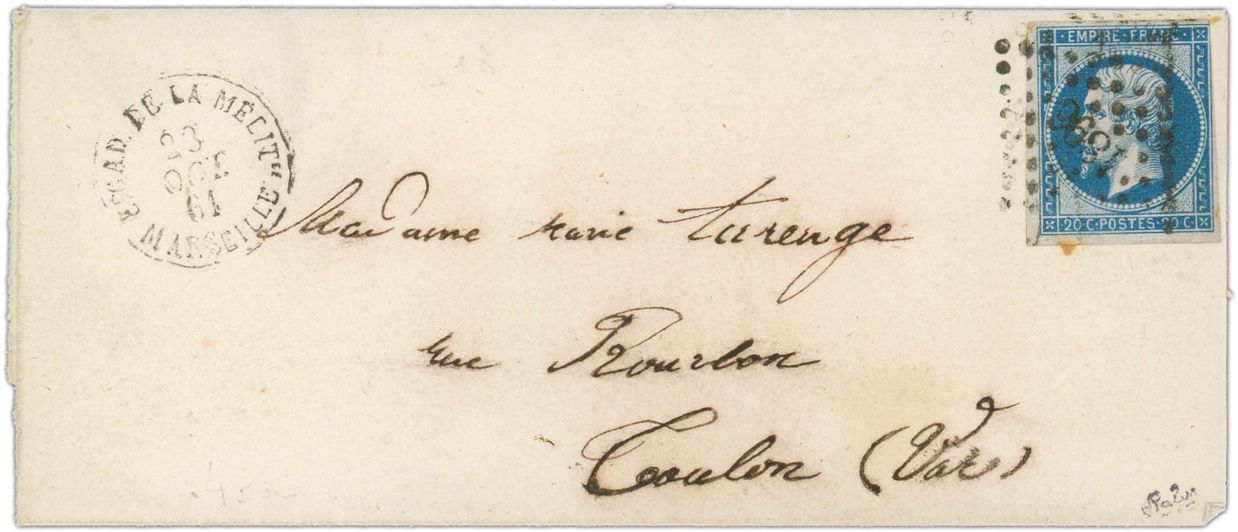 ESCAD. DE LA MEDIT.EE
23
OCT
61
MARSEILLE
EMPIRE·FRANC·
20 C·POSTES·20 C·
Madame Marie Turenge
rue Bourbon
Toulon (Var)